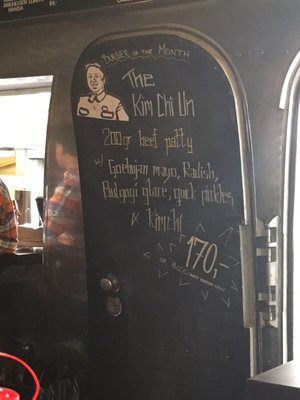 AMUNDSEN
HANSA
84,-
BURGER OF THE MONTH
The
Kim Chi Un
200gr beef patty
w/ Gochujan mayo, Radish,
Bulgogi glaze, quick pickles
& Kimchi
170,-